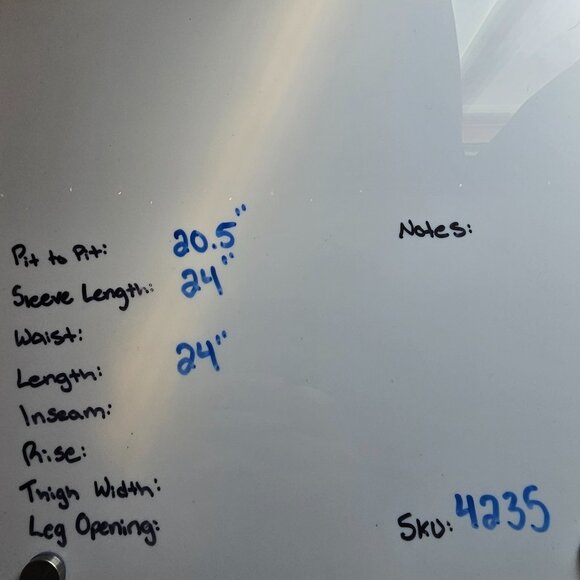 Pit to Pit: 20.5"
Notes:
Sleeve Length: 24"
Waist:
Length: 24"
Inseam:
Rise:
Thigh Width:
Leg Opening:
SKU: 4235